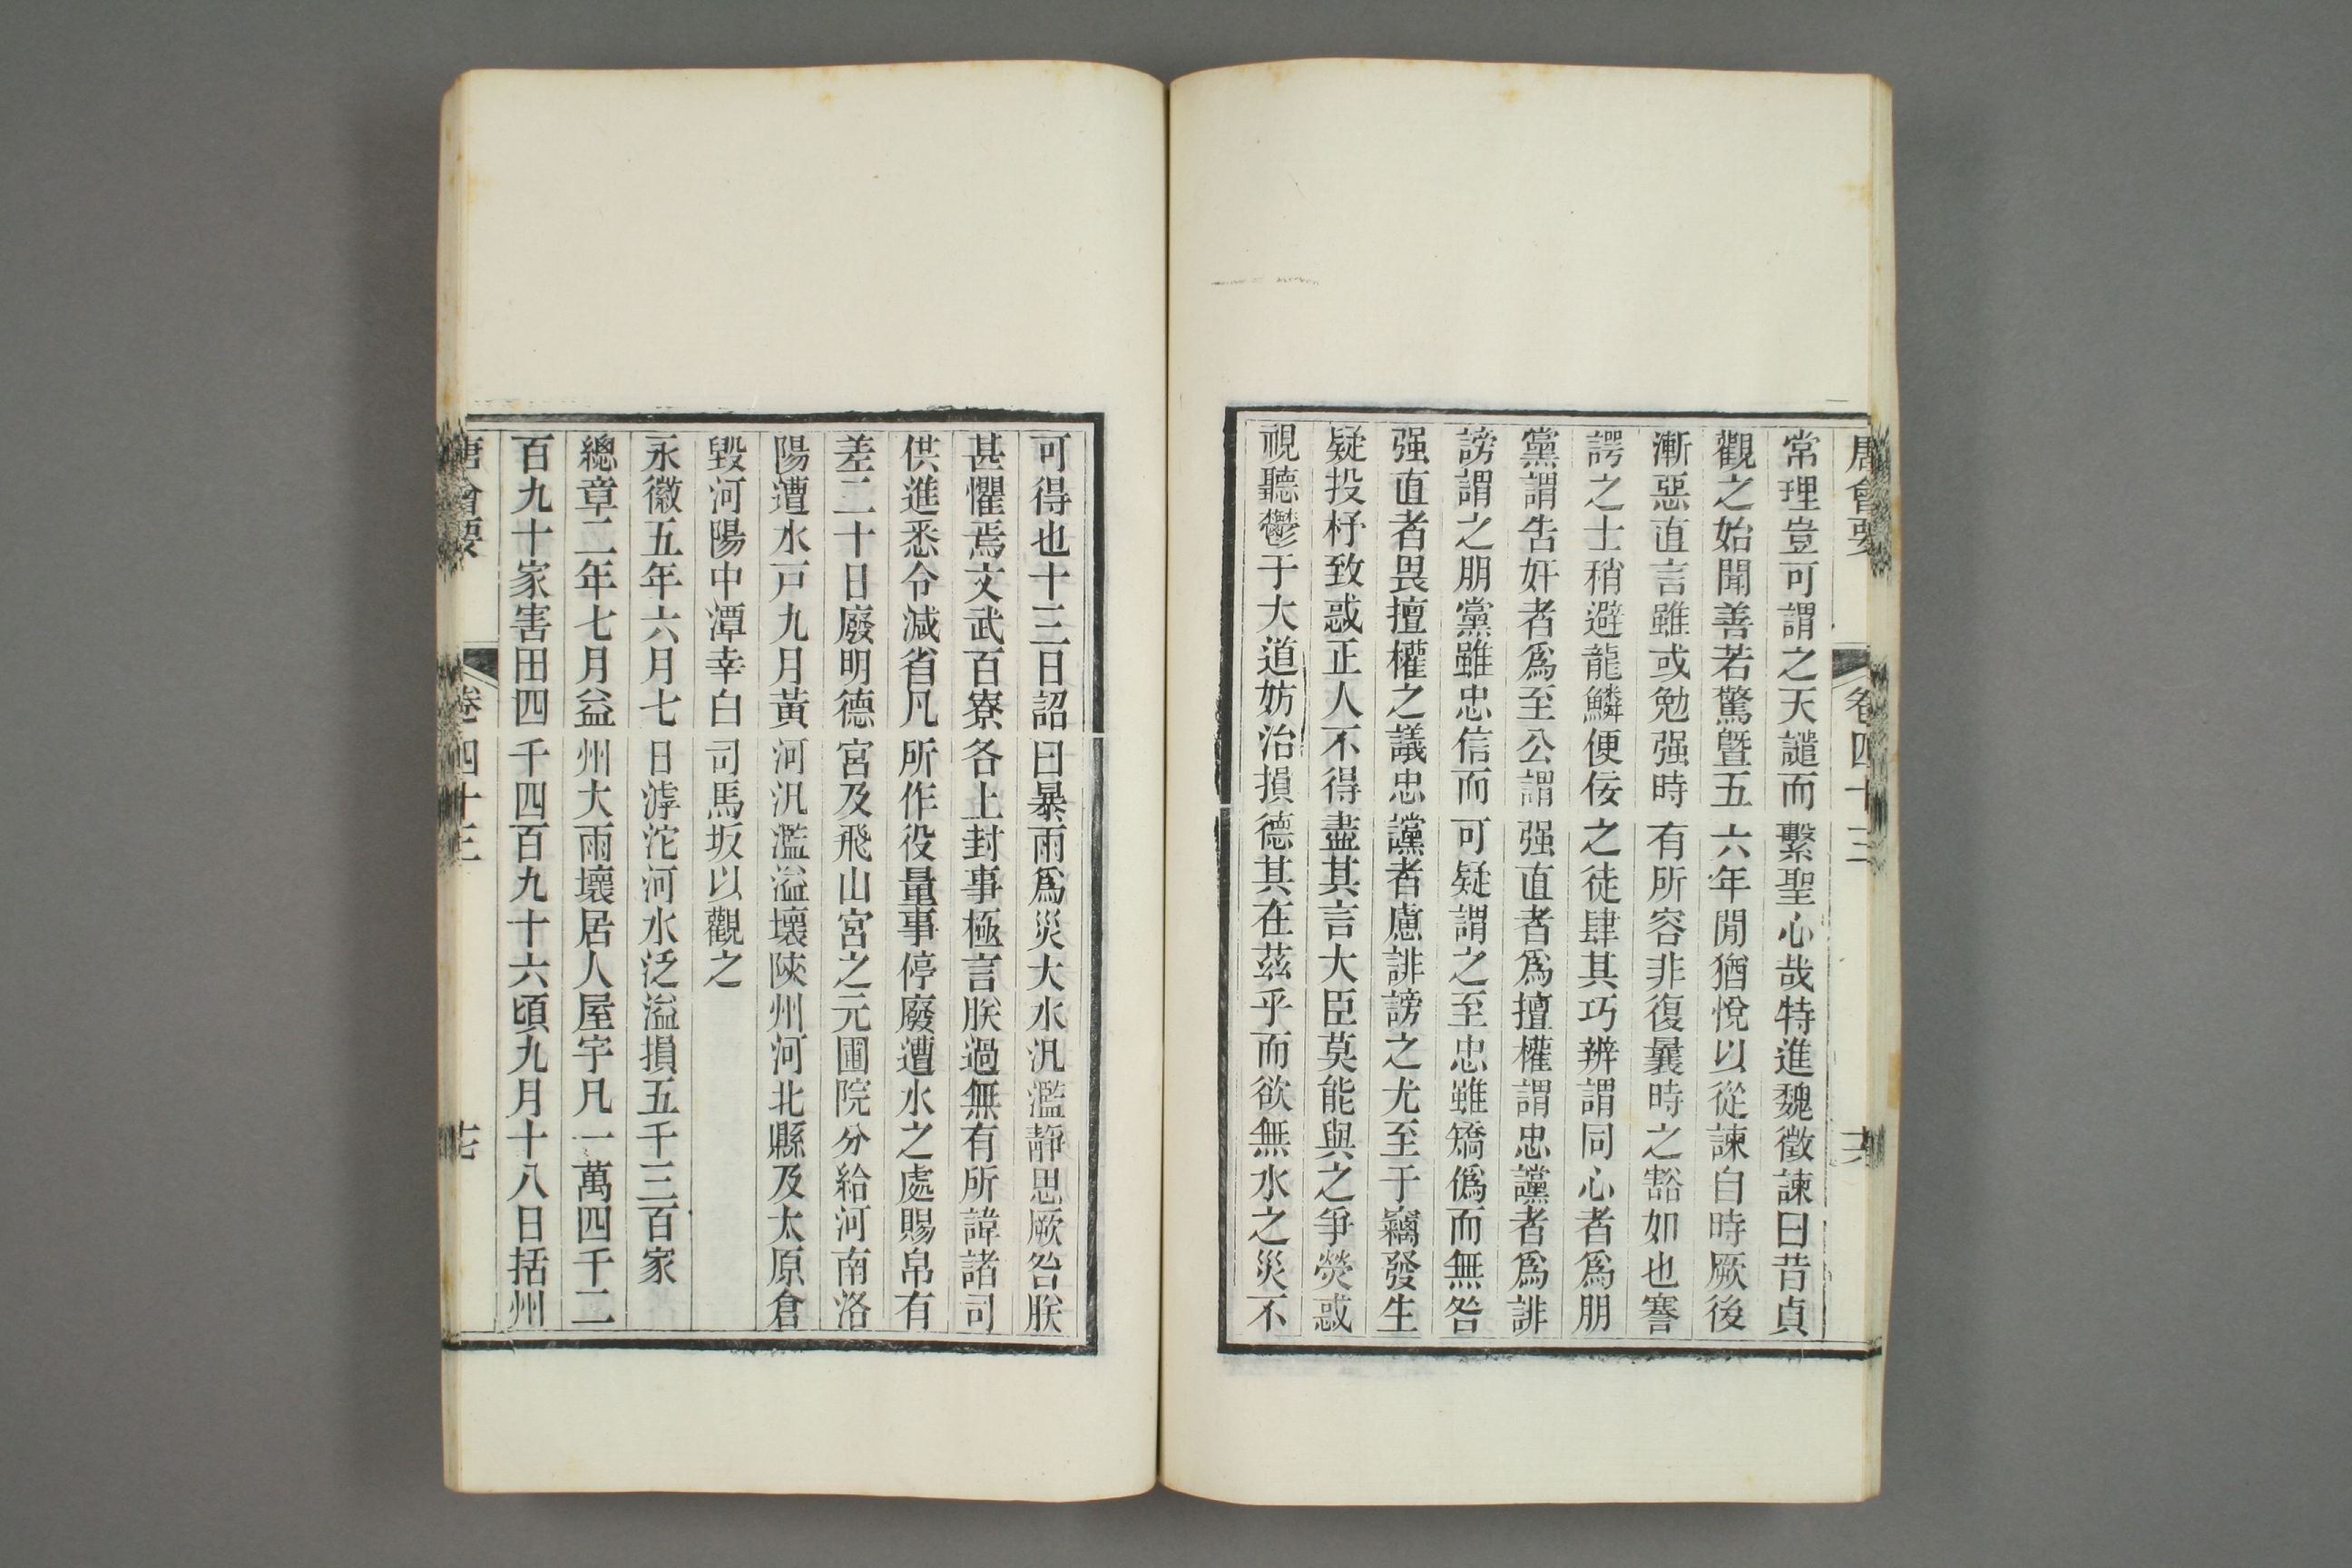 唐會要 卷四十三 十六
常理豈可謂之天譴而繫聖心哉特進魏徵諫曰昔貞
觀之始聞善若驚曁五六年閒猶悅以從諫自時厥後
漸惡直言雖或勉强時有所容非復曩時之豁如也謇
諤之士稍避龍鱗便佞之徒肆其巧辨謂同心者爲朋
黨謂告奸者爲至公謂强直者爲擅權謂忠讜者爲誹
謗謂之朋黨雖忠信而可疑謂之至忠雖矯僞而無咎
强直者畏擅權之議忠讜者慮誹謗之尤至于竊發生
疑投杼致惑正人不得盡其言大臣莫能與之爭熒惑
視聽鬱于大道妨治損德其在茲乎而欲無水之災不
可得也十三日詔曰暴雨爲災大水汎濫靜思厥咎朕
甚懼焉文武百寮各上封事極言朕過無有所諱諸司
供進悉令減省凡所作役量事停廢遭水之處賜帛有
差二十日廢明德宮及飛山宮之元圃院分給河南洛
陽遭水戸九月黃河汎濫溢壞陝州河北縣及太原倉
毀河陽中潭幸白司馬坂以觀之
永徽五年六月七日滹沱河水泛溢損五千三百家
總章二年七月益州大雨壞居人屋宇凡一萬四千二
百九十家害田四千四百九十六頃九月十八日括州
唐會要 卷四十三 十七